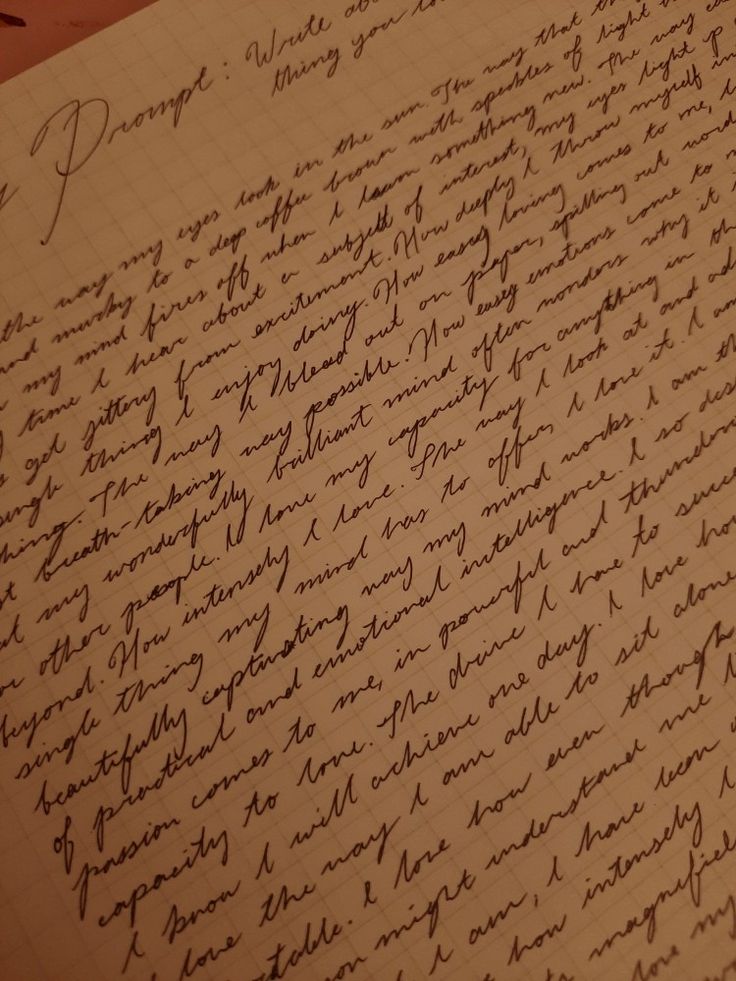 Prompt: Write abo
thing you lo
the way my eyes look in the sun. The way that th
and murky to a deep coffee brown with speckles of light
my mind fires off when I learn something new. The way
time I hear about a subject of interest, my eyes light up
get jittery from excitement. How deeply I throw myself in
single thing I enjoy doing. How easy loving comes to me,
thing. The way I bleed out on paper, spilling out word
breath-taking way possible. How easy emotions come to
my wonderfully brilliant mind often wonders why it
or other people. I love my capacity for anything in th
beyond. How intensely I love. The way I look at and ad
single thing my mind has to offer, I love it. I am
beautifully captivating way my mind works. I am th
of practical and emotional intelligence. I so des
passion comes to me, in powerful and thundero
capacity to love. The drive I have to succe
I know I will achieve one day. I love ho
love the way I am able to sit alone
table. I love how even though
you might understand me
I am, I have been
how intensely I
magnified
love my